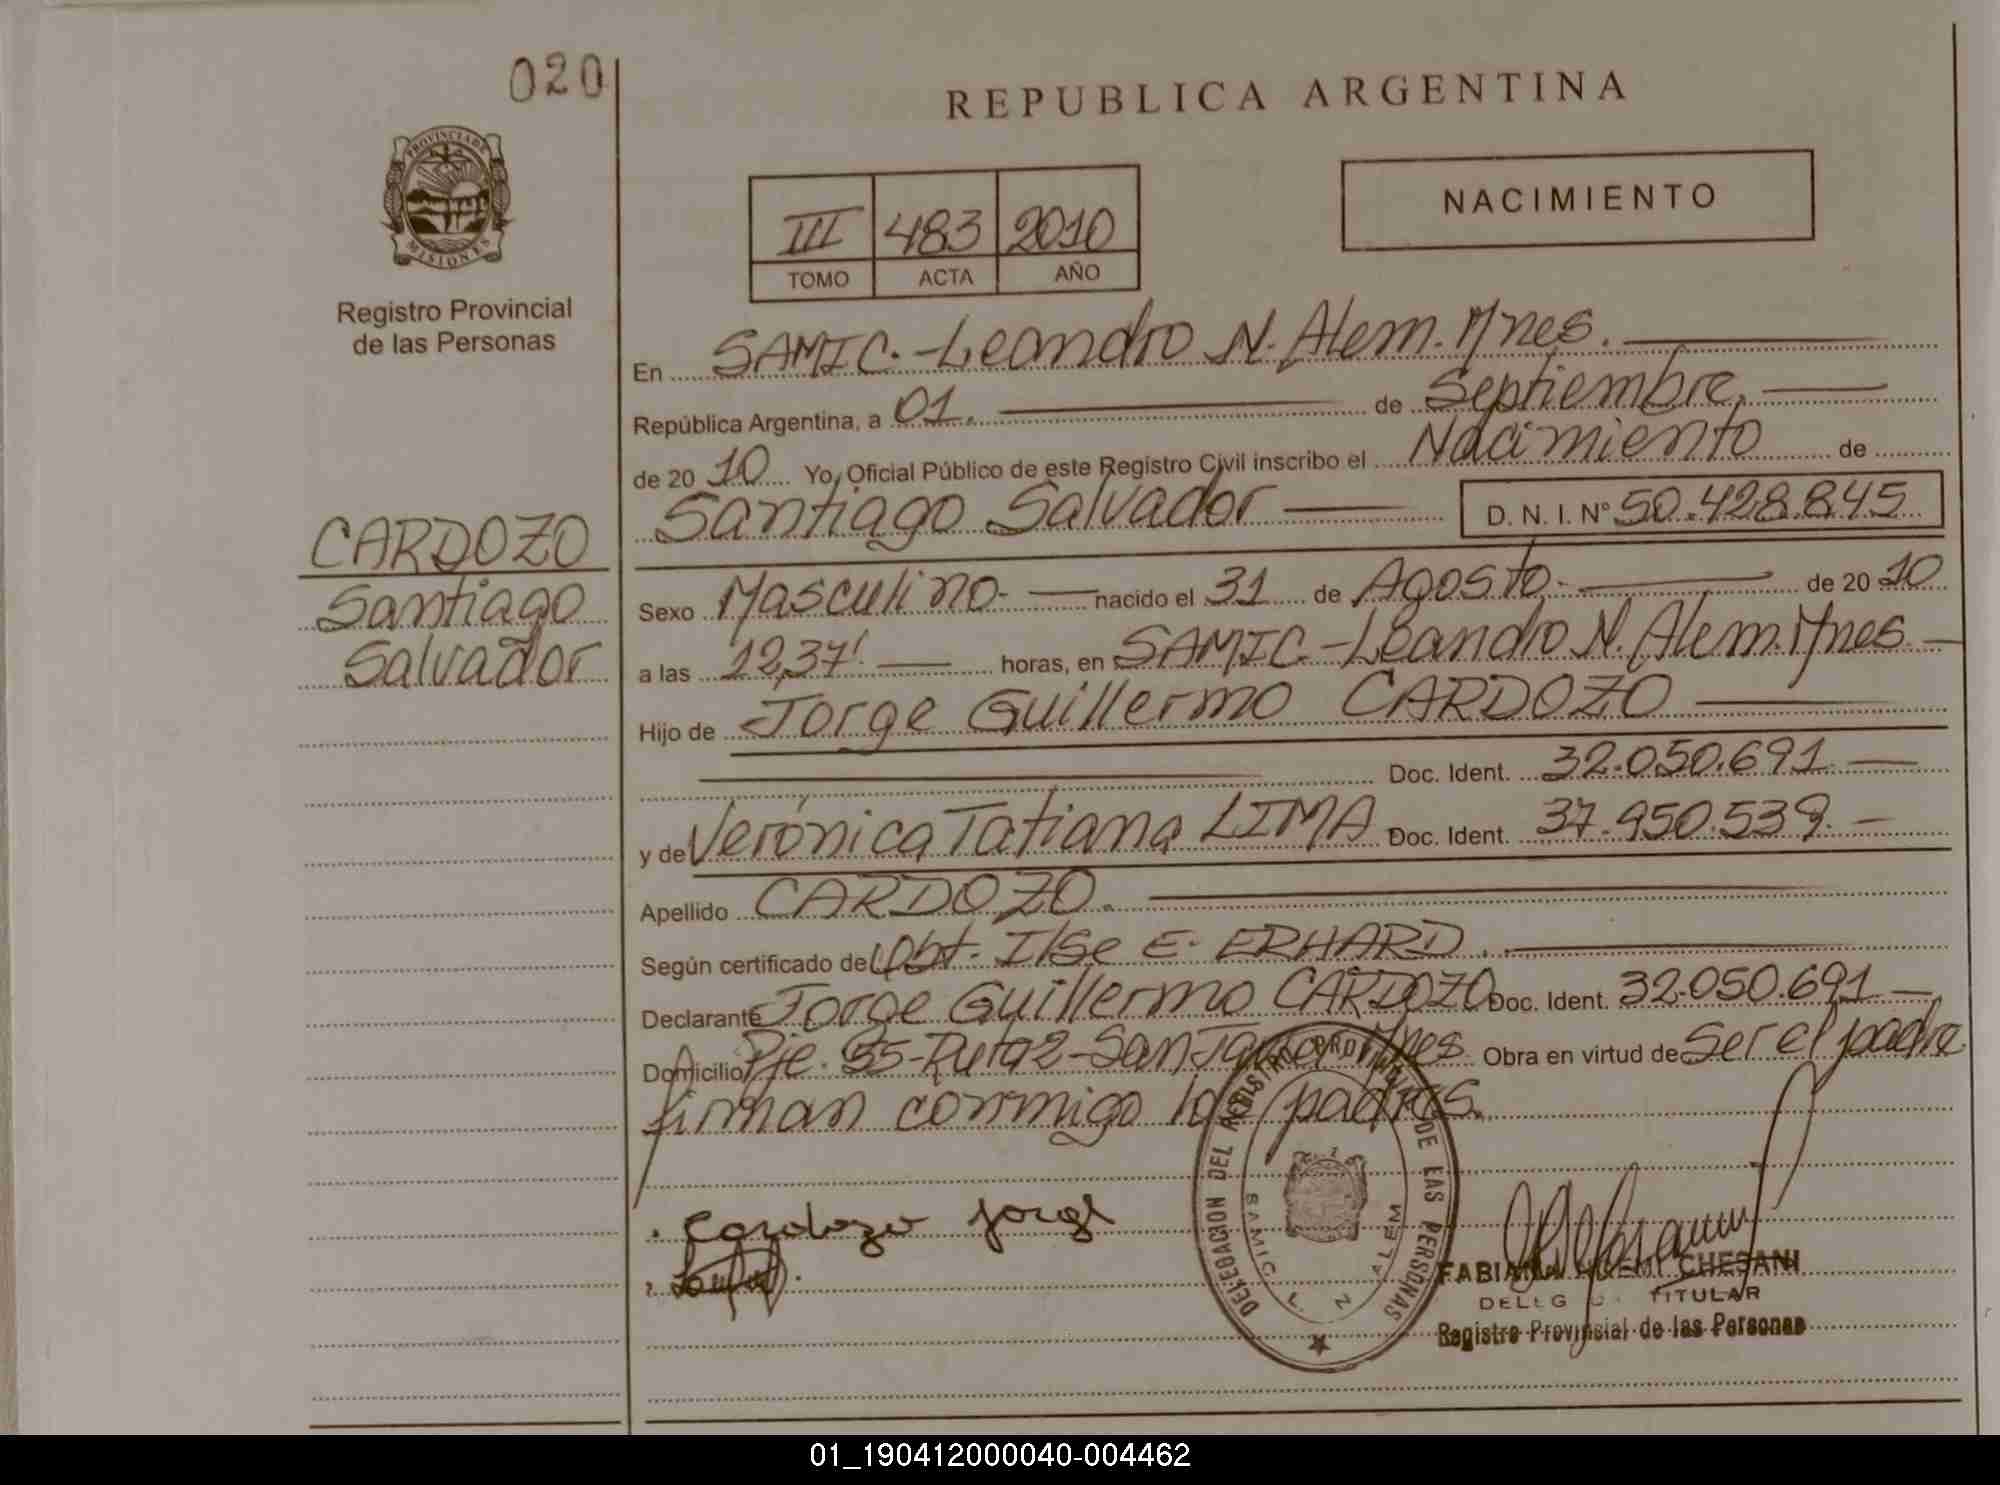 020
REPUBLICA ARGENTINA
PROVINCIA DE MISIONES
NACIMIENTO
III 483 2010
TOMO ACTA AÑO
Registro Provincial
de las Personas
En SAMIC.-Leandro N. Alem. Mnes.
República Argentina, a 01. de Septiembre.
de 2010 Yo, Oficial Público de este Registro Civil inscribo el Nacimiento de
Santiago Salvador D. N. I. Nº 50.428.845
CARDOZO
Santiago
Salvador
Sexo Masculino- nacido el 31 de Agosto.- de 2010
a las 12,37'. horas, en SAMIC.-Leandro N. Alem. Mnes.
Hijo de Jorge Guillermo CARDOZO
Doc. Ident. 32.050.691
y de Verónica Tatiana LIMA Doc. Ident. 37.950.539.
Apellido CARDOZO.
Según certificado de Obt. Ilse E. ERHARD.
Declarante Jorge Guillermo CARDOZO Doc. Ident. 32.050.691
Domicilio Pje. 55-Ruta 2-San Mnes. Obra en virtud de Ser el padre
firman conmigo los padres.
Cardozo Jorge
DELEGACION DEL REGISTRO PROVINCIAL DE LAS PERSONAS
SAMIC L. N ALEM
FABIANA NOEMI CHESANI
TITULAR
Registro Provincial de las Personas
01_190412000040-004462